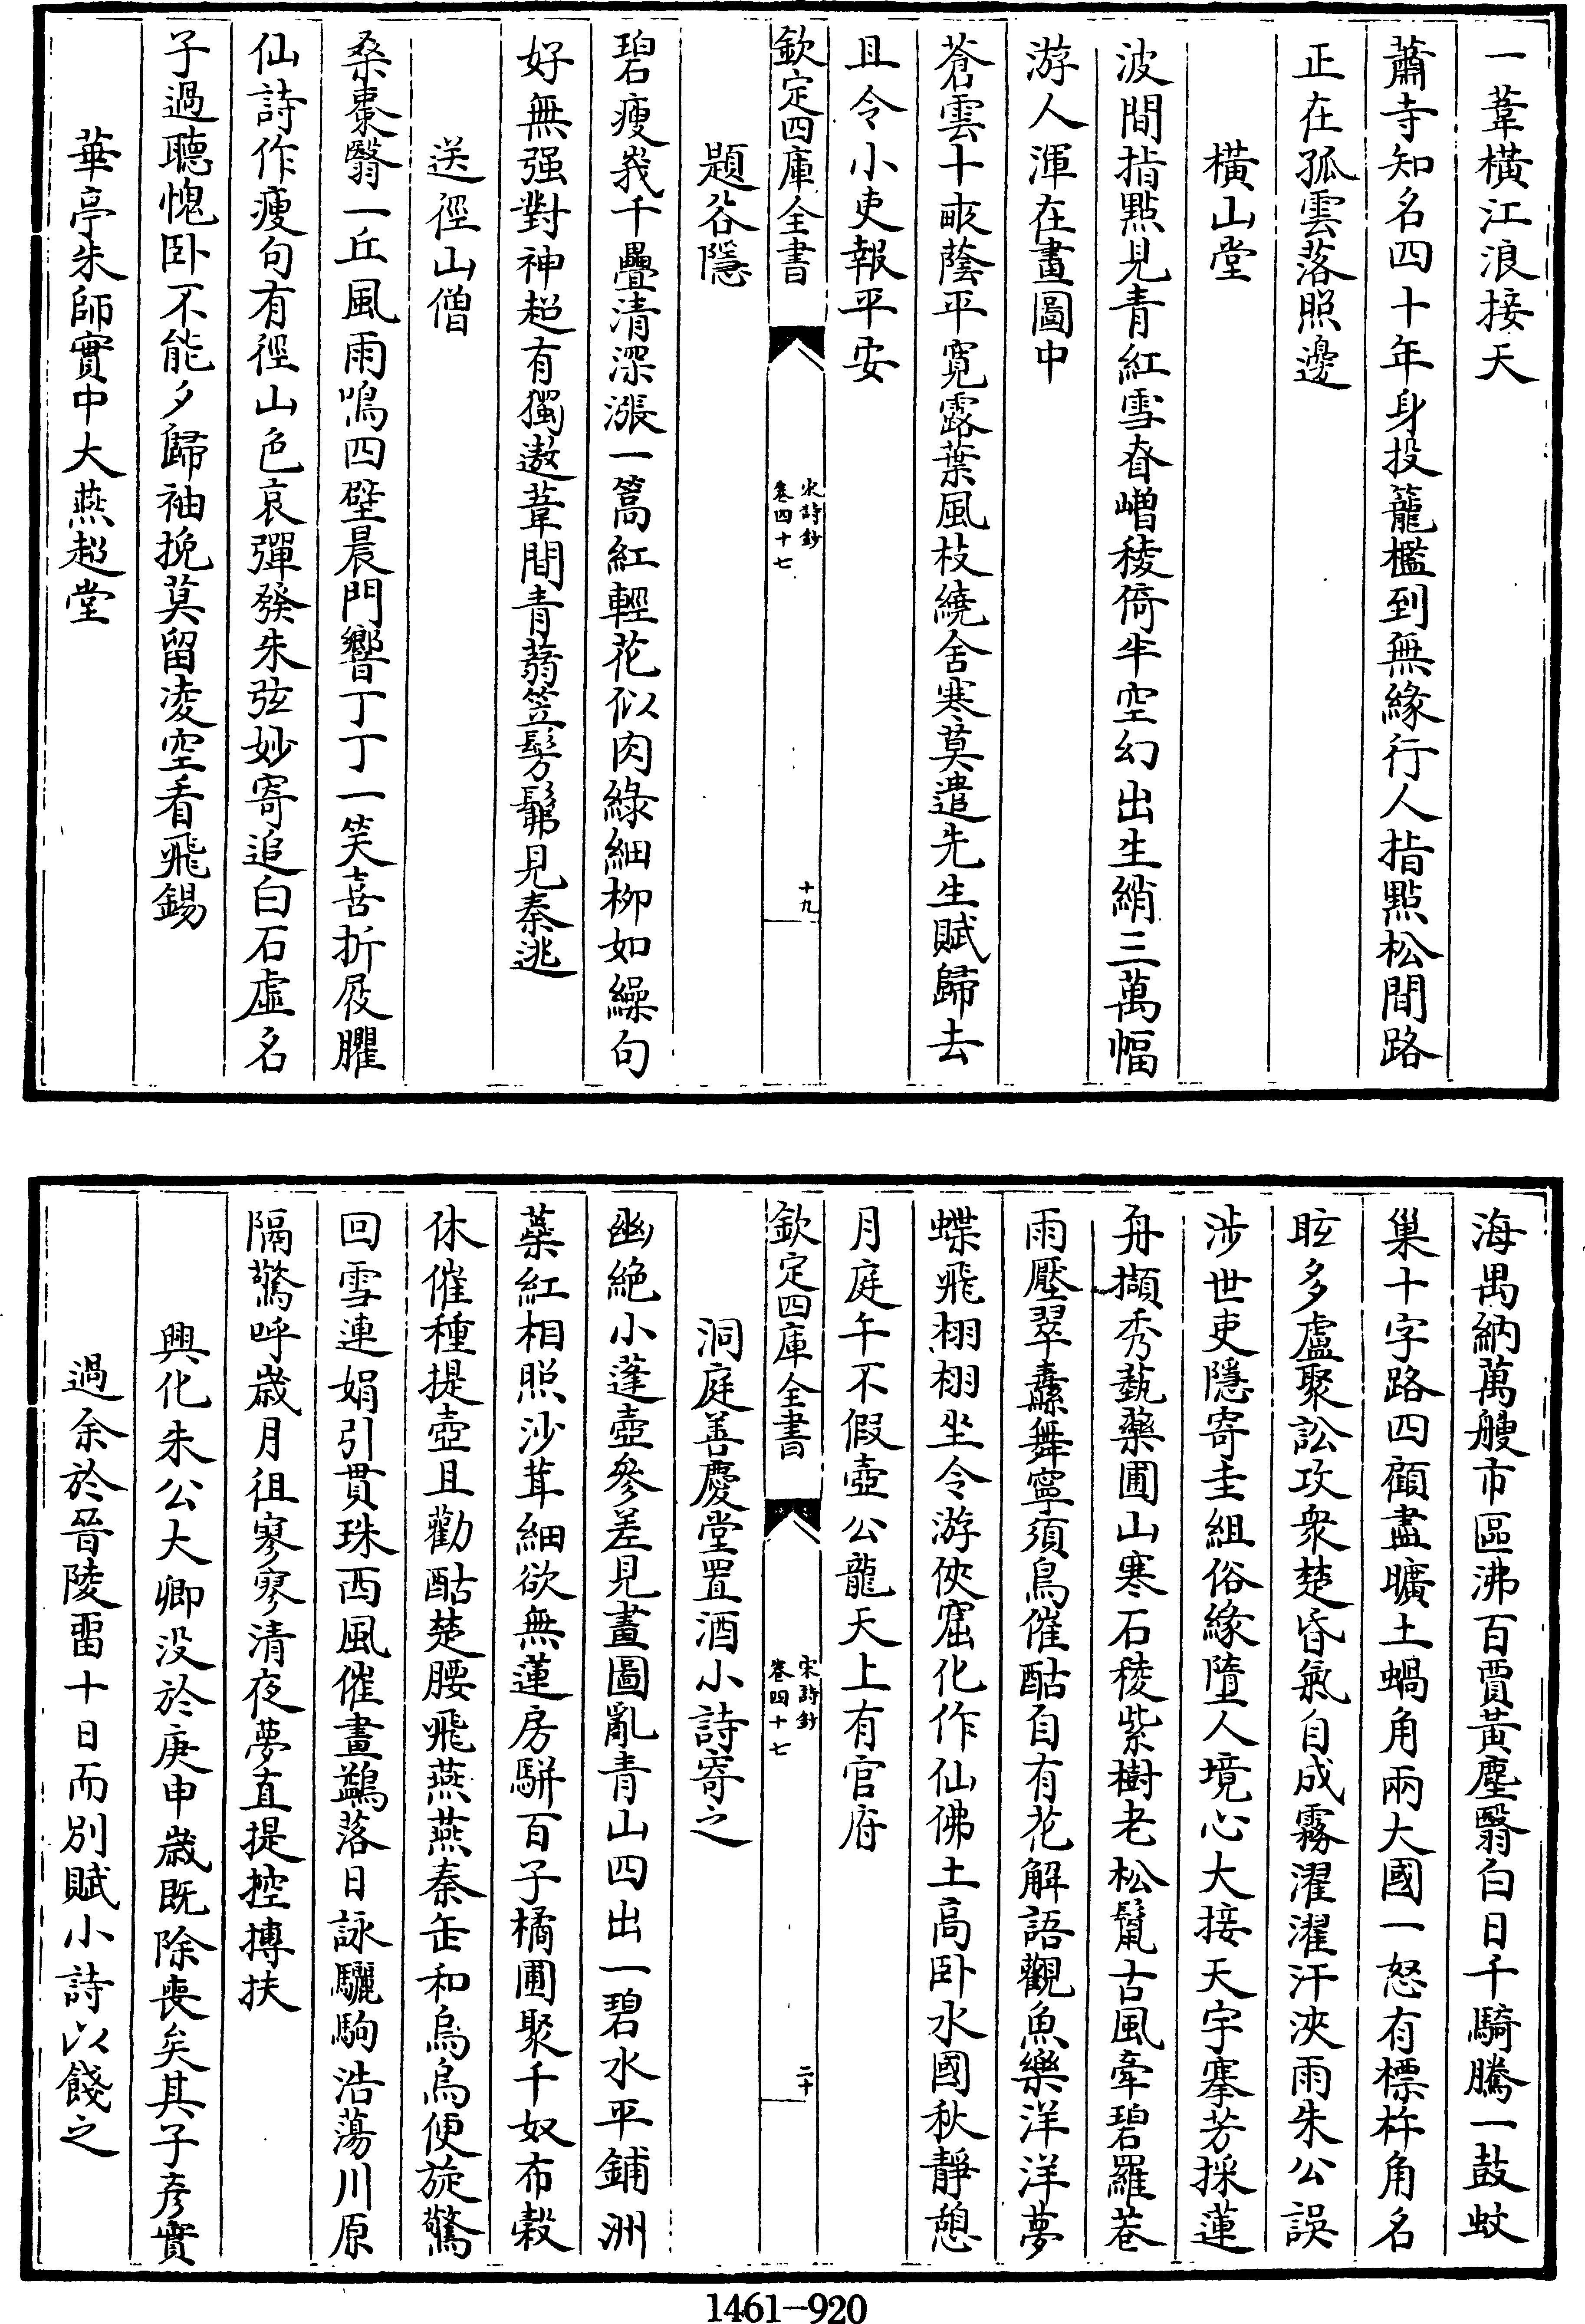 一葦橫江浪接天
蕭寺知名四十年身投籠檻到無緣行人指點松間路
正在孤雲落照邊
橫山堂
波間指點見青紅雪脊嶒稜倚半空幻出生綃三萬幅
游人渾在畫圖中
蒼雲十畝蔭平寬露葉風枝繞舍寒莫遣先生賦歸去
且令小吏報平安
欽定四庫全書
宋詩鈔
卷四十七
十九
題谷隱
碧瘦峩千疊清深漲一篙紅輕花似肉綠細柳如繰句
好無强對神超有獨遨葦間青蒻笠髣髴見秦逃
送徑山僧
桑棗翳一丘風雨鳴四壁晨門響丁丁一笑喜折屐臞
仙詩作瘦句有徑山色哀彈發朱弦妙寄追白石虛名
子過聽愧卧不能夕歸袖挽莫留凌空看飛錫
華亭朱師實中大燕超堂
海禺納萬艘市區沸百賈黃塵翳白日千騎騰一鼓蚊
巢十字路四顧盡曠土蝸角兩大國一怒有標杵角名
眩多盧聚訟攻衆楚昏氣自成霧濯濯汗浹雨朱公誤
涉世吏隱寄圭組俗緣墮人境心大接天宇搴芳採蓮
舟擷秀蓺藥圃山寒石稜紫樹老松鬣古風牽碧羅卷
雨壓翠纛舞寧須鳥催酤自有花解語觀魚樂洋洋夢
蝶飛栩栩坐令游俠窟化作仙佛土高卧水國秋靜憩
月庭午不假壺公龍天上有官府
欽定四庫全書
宋詩鈔
卷四十七
二十
洞庭善慶堂置酒小詩寄之
幽絶小蓬壺參差見畫圖亂青山四出一碧水平鋪洲
蘂紅相照沙茸細欲無蓮房駢百子橘圃聚千奴布穀
休催種提壺且勸酤楚腰飛燕燕秦缶和烏烏便旋驚
回雪連娟引貫珠西風催畫鷁落日詠驪駒浩蕩川原
隔驚呼歲月徂寥寥清夜夢直提控摶扶
興化朱公大卿没於庚申歲既除喪矣其子彥實
過余於晉陵畱十日而別賦小詩以餞之
1461-920